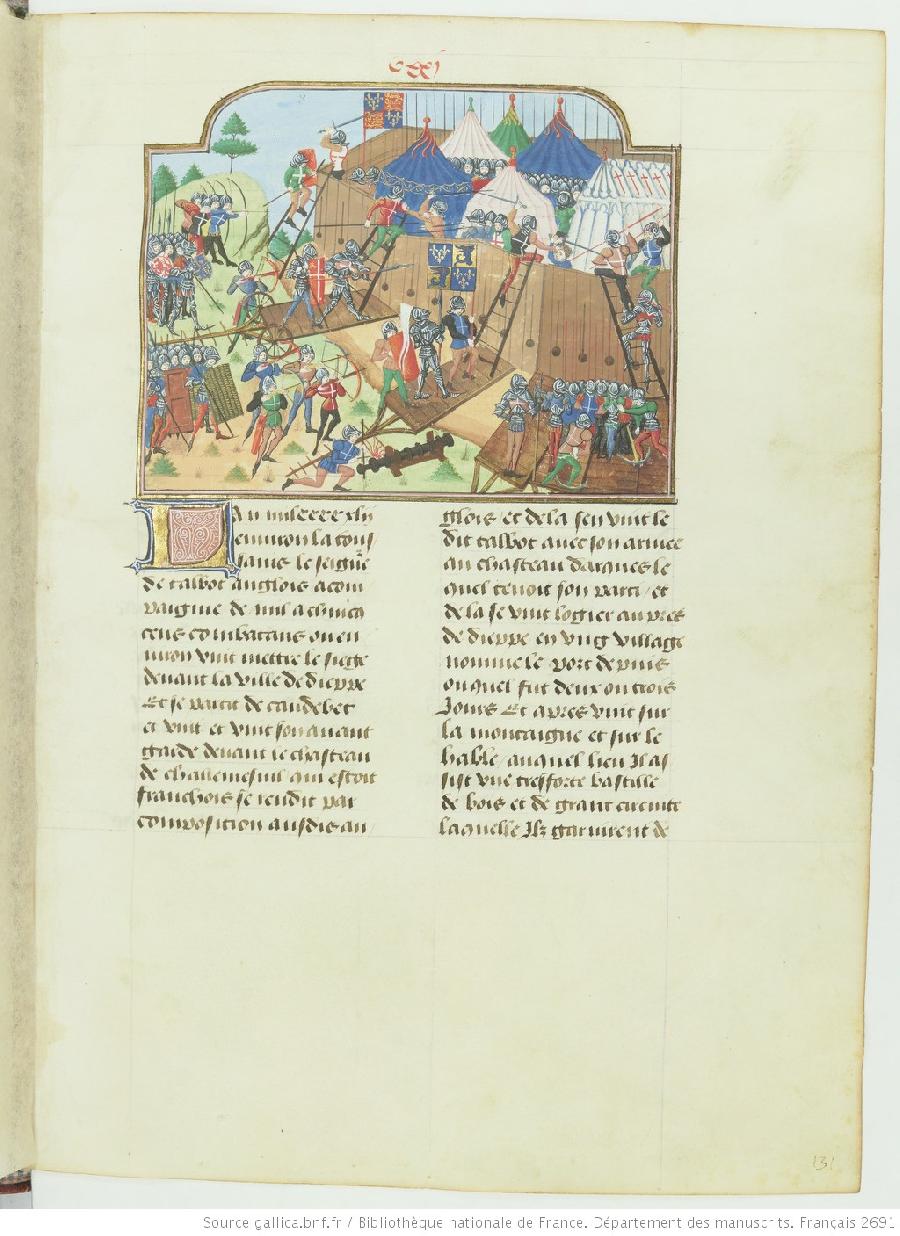 L'an mil cccc xlij
enuiron la tous
sains le seigneur
de talbot anglois acom
paignie de mil a chincq
cens combatans ou en
uiron vint mettre le siege
deuant la ville de dieppe
Et se partit de caudebec
et vint et vint son auant
garde deuant le chasteau
de charlemesnil qui estoit
franchois se rendit par
composition ausdis an
glois / et de la sen vint le
dit talbot auec son armee
au chasteau darques le
quel tenoit son parti / et
de la se vint logier au pres
de dieppe en vng village
nomme le port de
ouquel fut deux ou trois
Jours Et apres vint sur
la montaigne et sur le
hable auquel lieu Il as
sist vne tresforte bastille
de bois et de grant encainte
laquelle Ilz garnirent de
131
Source gallica.bnf.fr / Bibliothèque nationale de France. Département des manuscrits. Français 2691